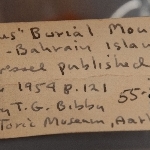 us" Burial Mou
- Bahrain Islan
published
1954 p. 121
y T. G. Bibby 55-2
toric Museum, Aarh